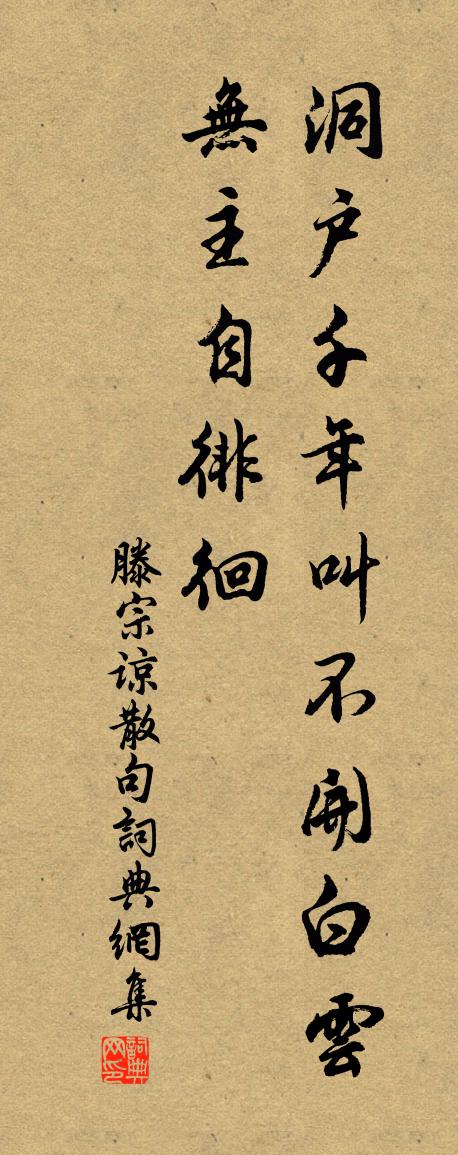 洞户千年叫不開白雲
無主自徘徊
滕宗谅散句詞典網集
詞典网印